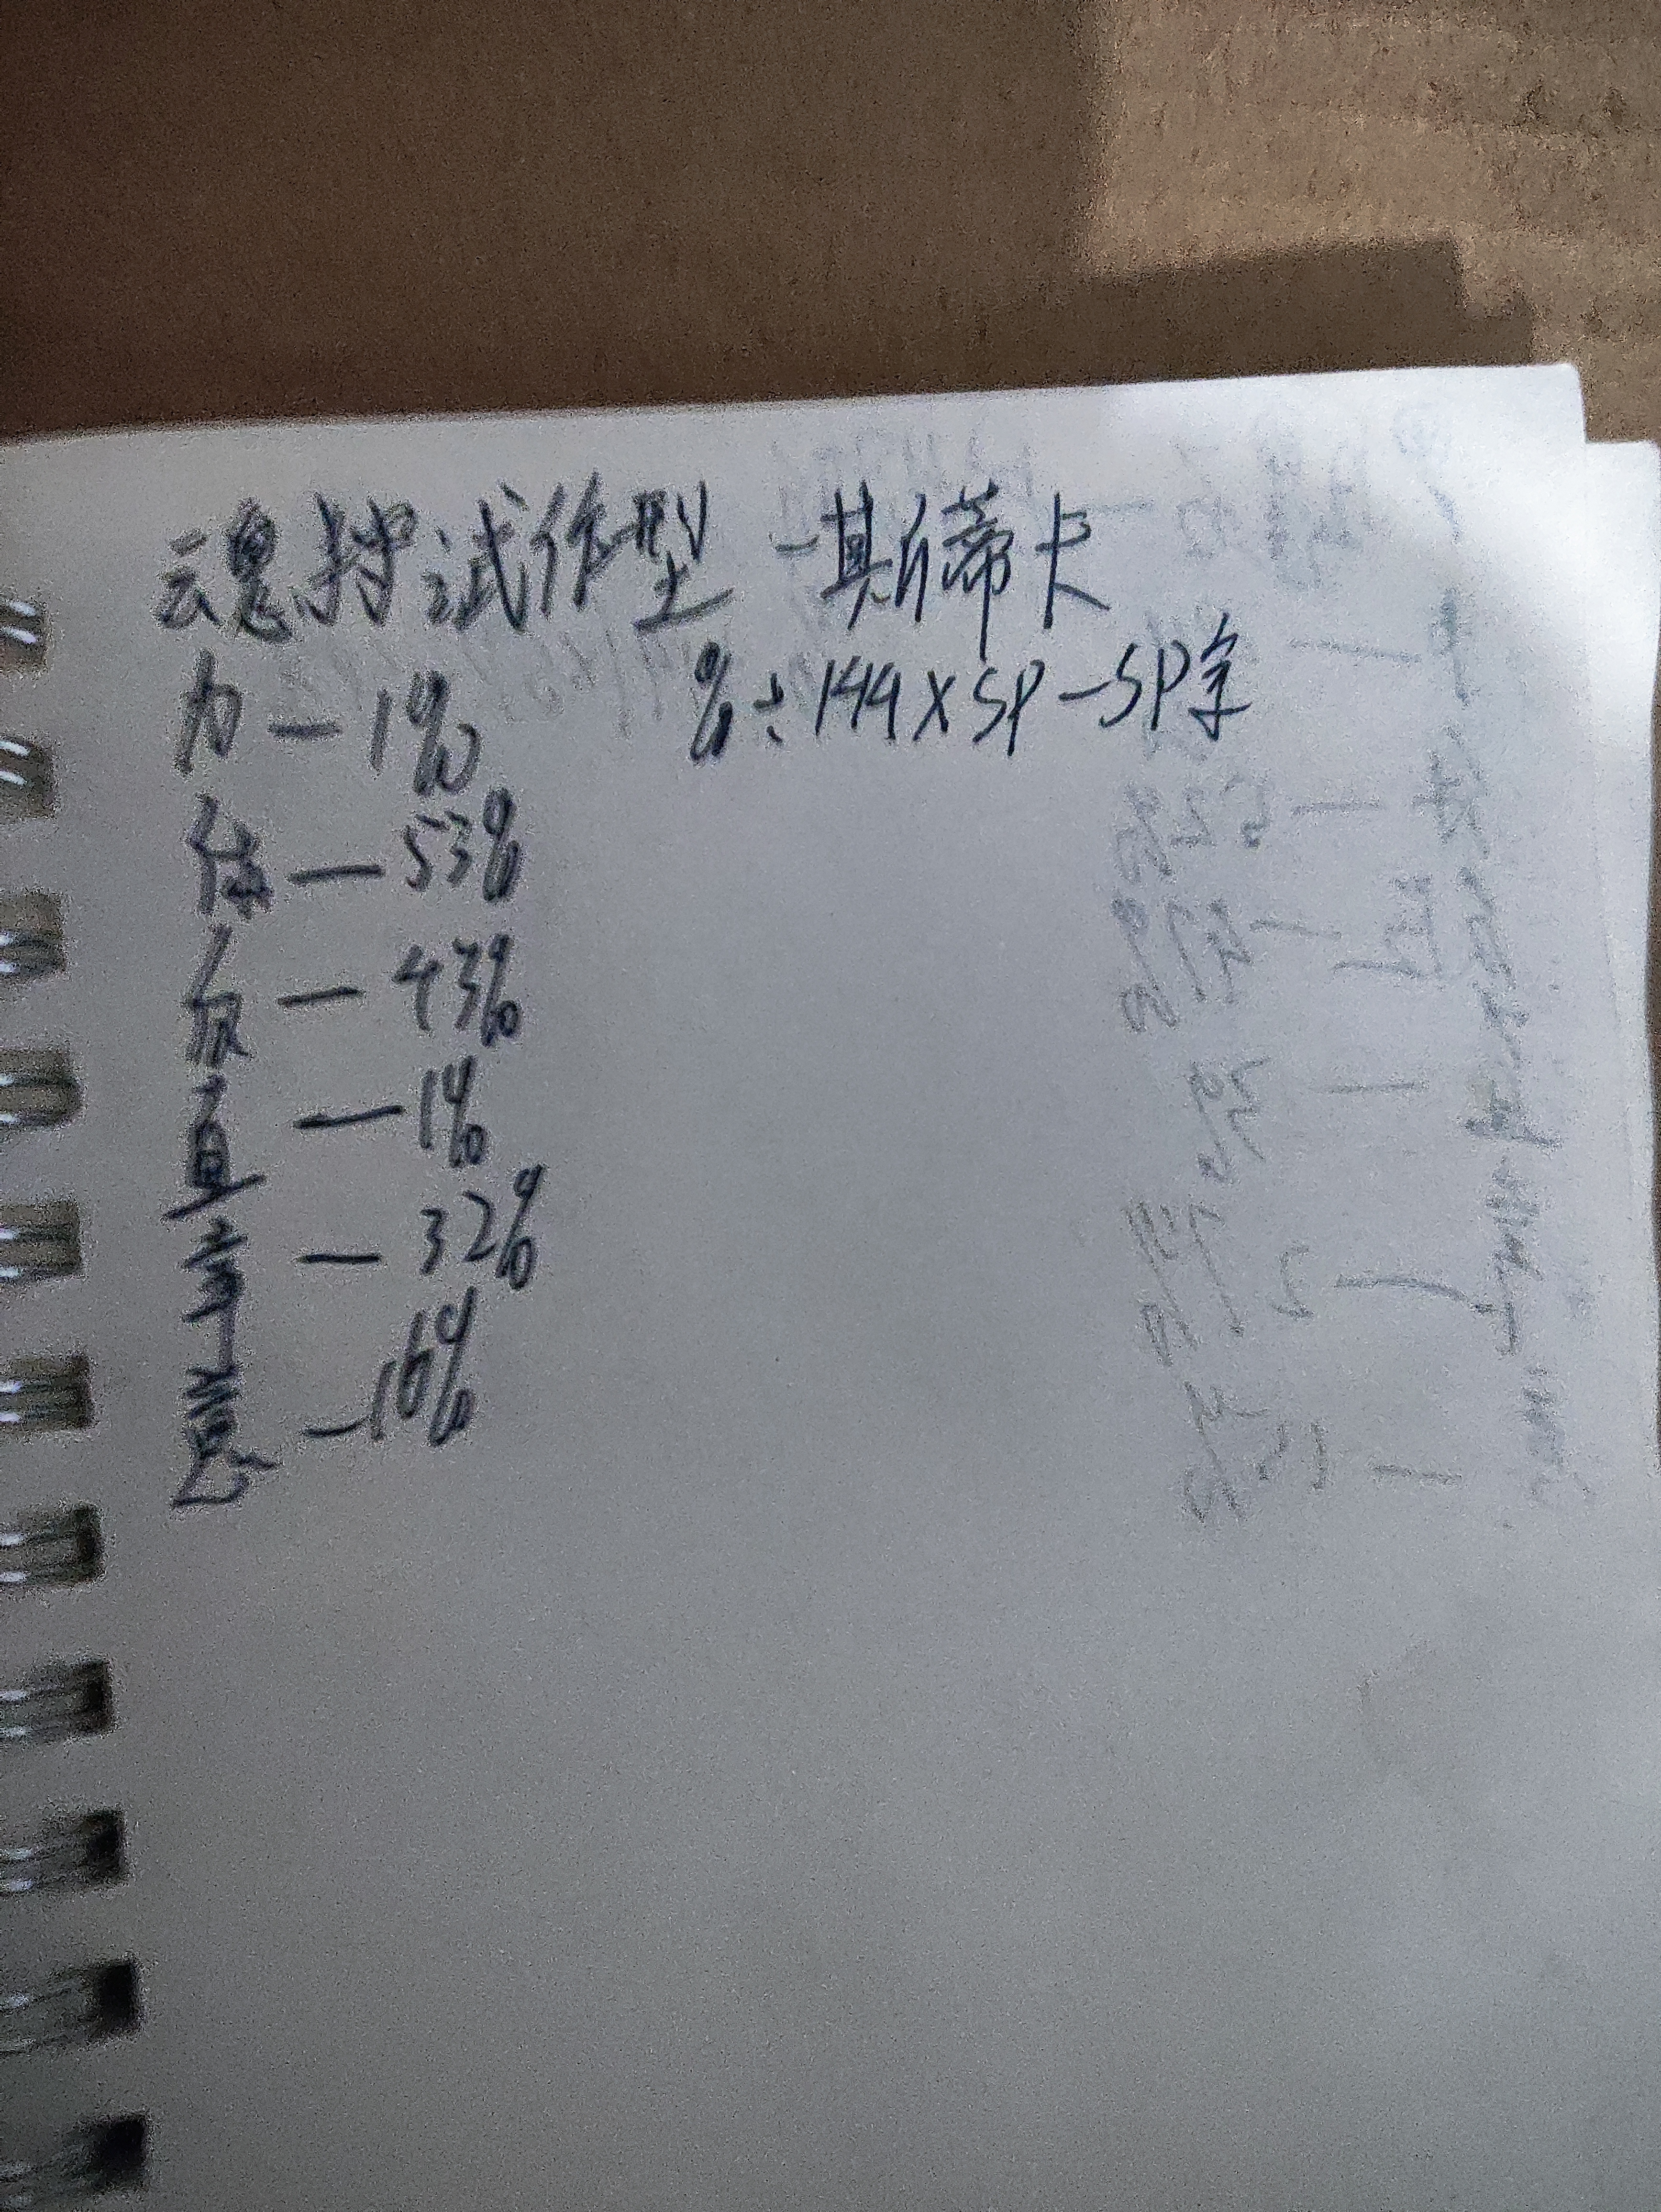 魂试作型 - 斯蒂卡
力 — 1% %÷144×SP-SP余
体 — 53%
— 43%
直 — 1%
幸 — 32%
意 — 16%